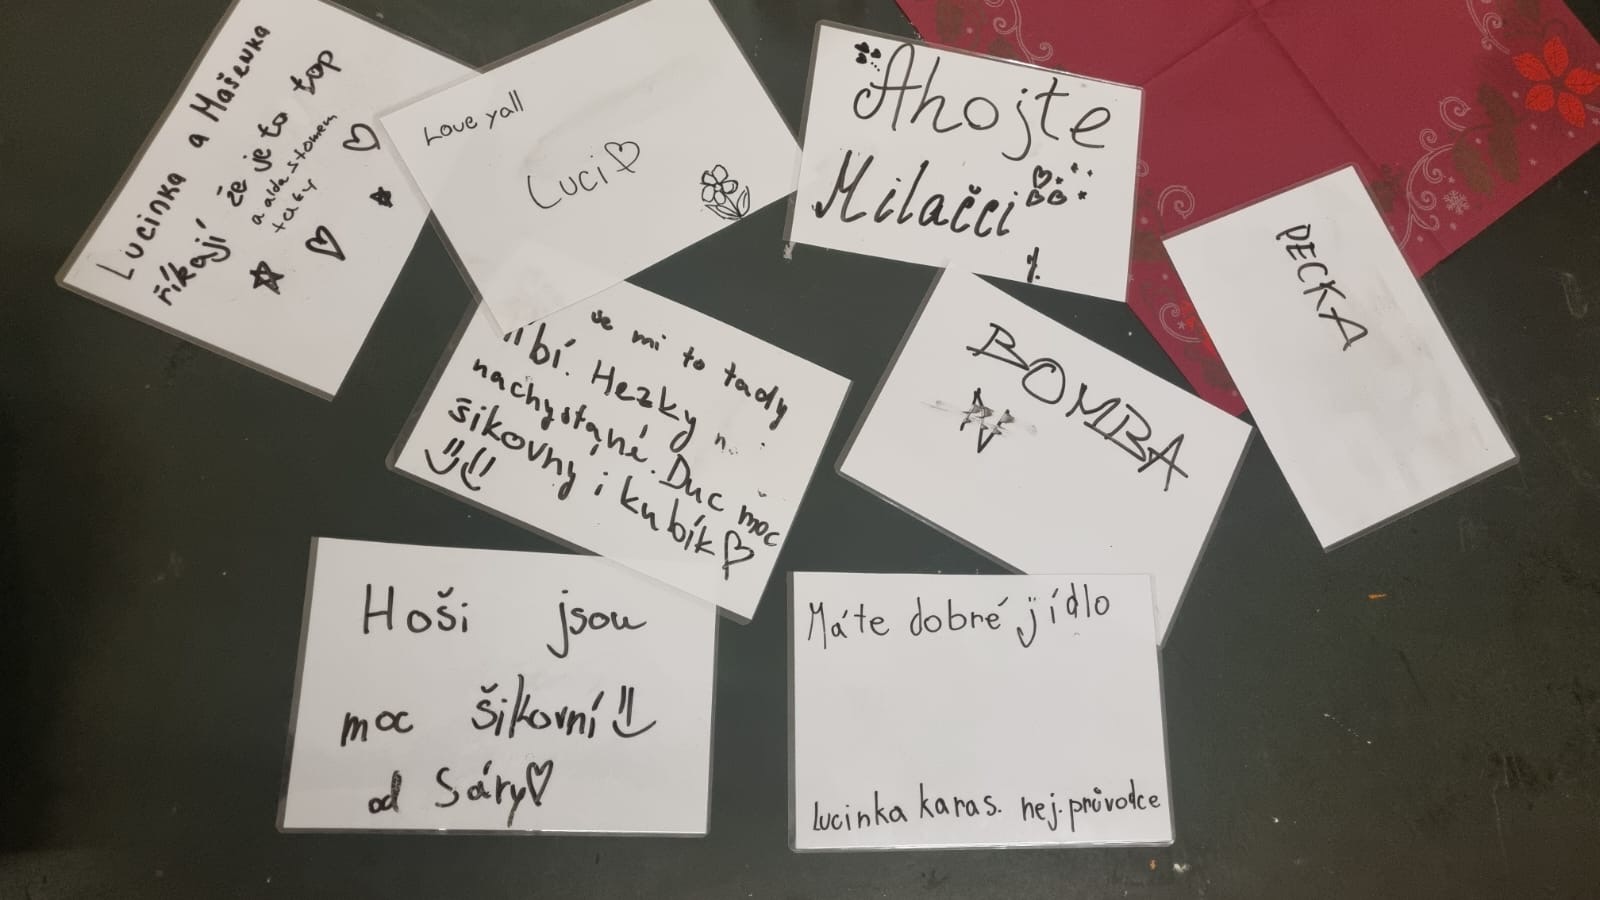 Lucinka a Mašenka
říkají že je to top
a alda s tomem
taky
Love yall
Luci
Ahojte
Milačci
se mi to tady
líbí. Hezky
nachystané. Duc moc
šikovny i kubík
BOMBA
PECKA
Hoši jsou
moc šikovní
od Sáry
Máte dobré jídlo
Lucinka karas. nej. průvodce